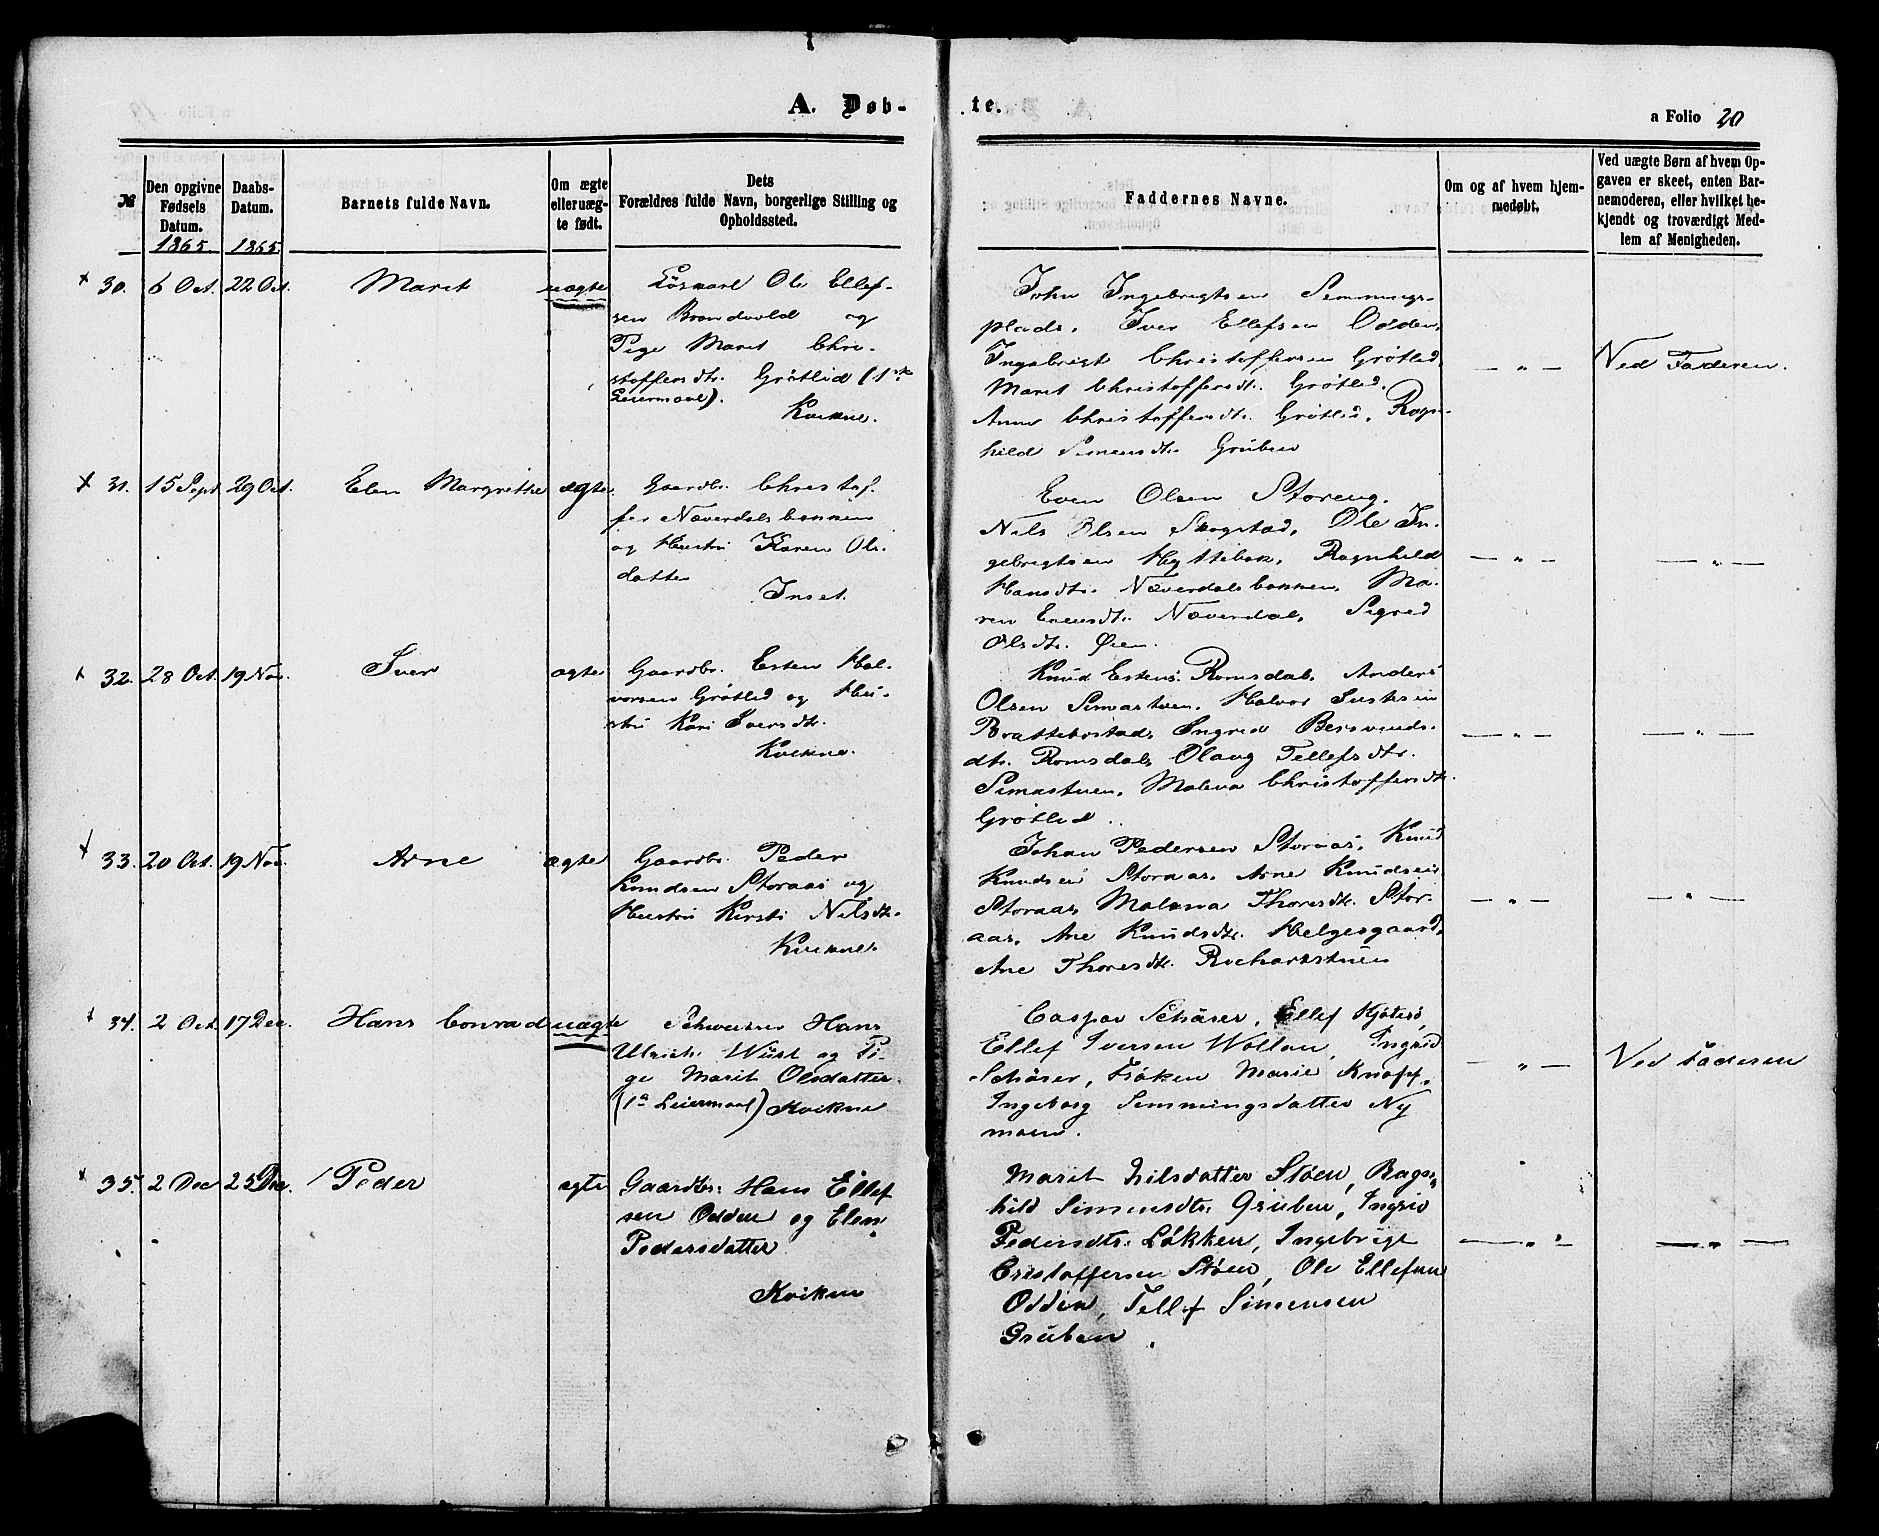 A. Døb-
te.
a Folio 20
№
Den opgivne
Fødsels
Datum.
1865
Daabs-
Datum.
1865.
Barnets fulde Navn.
Om ægte
eller uæg-
te født.
Dets
Forældres fulde Navn, borgerlige Stilling og
Opholdssted.
Faddernes Navne.
Om og af hvem hjem-
medøbt.
Ved uægte Børn af hvem Op-
gaven er skeet, enten Bar-
nemoderen, eller hvilket be-
kjendt og troværdigt Med-
lem af Menigheden.
30. 6 Oct. 22 Oct. Maret uægte
Løsmand Ole Ellef-
sen Brandvold og
Pige Maret Chri-
stoffersdtr. Grötlid (1ste
Leiermaal).
Kvikne.
John Ingebrigtsen Semmings-
plads. Iver Ellefsen Odden,
Ingebrigt Christoffersen Grötlid,
Maret Christoffersdtr. Grötlid.
Anne Christoffersdtr. Grötlid, Ragn-
hild Simensdtr. Gruben
— " —
Ved Faderen.
31. 15 Sept. 29 Oct. Elen Margrethe ægte
Gaardbr. Christof-
fer Næverdalsbakken
og Hustru Karen Ols-
datter
Inset.
Even Olsen Storeng.
Nils Olsen Skogstad, Ole In-
gebrigtsen Hyttebak, Ragnhild
Hansdtr. Næverdalsbakken, Ma-
ren Evensdtr. Næverdal, Sigrid
Olsdtr. Øien.
— " —
— " —
32. 28 Oct. 19 Nov. Iver ægte
Gaardbr. Esten Hal-
vorsen Grötlid og Hu-
stru Kari Iversdtr.
Kvikne.
Knud Estens. Romsdal, Anders
Olsen Simastuen. Halvor Justesen
Brattebostad, Ingrid Bersvends-
dtr. Romsdal, Olaug Tellefsdtr.
Simastuen, Malena Christoffersdtr.
Grötlid.
— " —
— " —
33. 20 Oct. 19 Nov. Arne ægte
Gaardbr. Peder
Knudsen Storaas og
Hustru Kirsti Nilsdtr.
Kvikne.
Johan Pedersen Storaas, Knud
Knudsen Storaas, Arne Knudsen
Storaas, Malena Thoresdtr. Stor-
aas, Ane Knudsdtr. Helgesgaard,
Ane Thoresdtr. Rochartstuen
— " —
— " —
34. 2 Oct. 17 Dec. Hans Conrad uægte
Schweitser Hans
Ulrich Wüst og Pi-
ge Marit Olsdatter
(1ste Leiermaal) Kvikne
Caspar Schärer, Ellef Kjöters,
Ellef Iversen Wollan, Ingrid
Schärer, Fröken Marie Knoff,
Ingeborg Semmingsdatter Ny
moen.
— " —
Ved Faderen
35. 2 Dec 25 Dec. Peder ægte
Gaardbr. Hans Ellef
sen Odden og Elen
Pedersdatter
Kvikne
Marit Nilsdatter Støen, Ragn-
hild Simensdtr. Gruben, Ingrid
Pedersdtr. Løkken, Ingebrigt
Cristoffersen Støen, Ole Ellefsen
Odden, Tellef Simensen
Gruben.
— " —
— " —